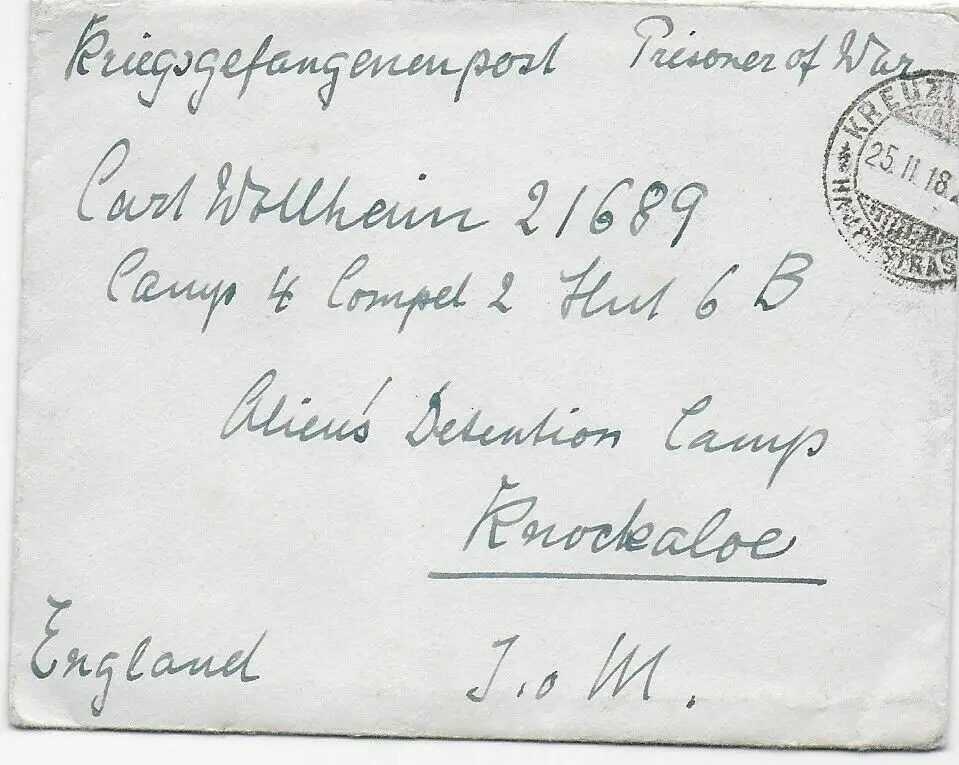 Kriegsgefangenenpost Prisoner of War
KREUZ
25.11.18.
HAUPTSTRAS
Carl Wollheim 21689
Camp 4 Compd 2 Hut 6 B
Alien's Detention Camp
Knockaloe
England I.o M.